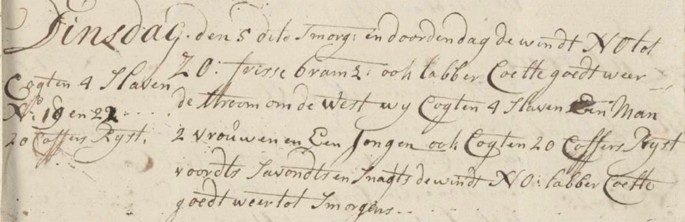 Dinsdag. den 5 dito Smorg: en doordendag de windt NO tot
ZO: frisse bramz: ook labber Coelte goedt weer
de Stroom om de West wy Cogten 4 Slaven Een Man
2 vrouwen en Een Jongen ook Cogten 20 Coffers Ryst
voordts Savondts en Snagts de windt NO: labber Coelte
goedt weer tot Smorgens..
Cogten 4 Slaven
No: 19 en 22
20 Coffers Ryst.